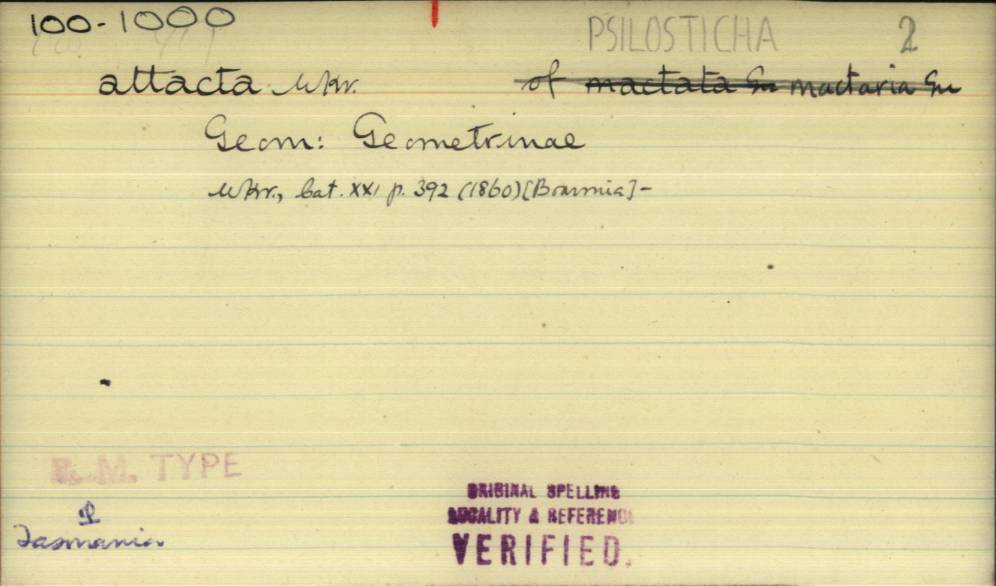 100-1000 PSILOSTICHA 2
attacta Wkr. of mactata Gu mactaria Gu
Geom: Geometrinae
Wkr., Cat. XXI p. 392 (1860) [Boarmia] -
B. M. TYPE
♀
Tasmania
ORIGINAL SPELLING
LOCALITY & REFERENCE
VERIFIED.